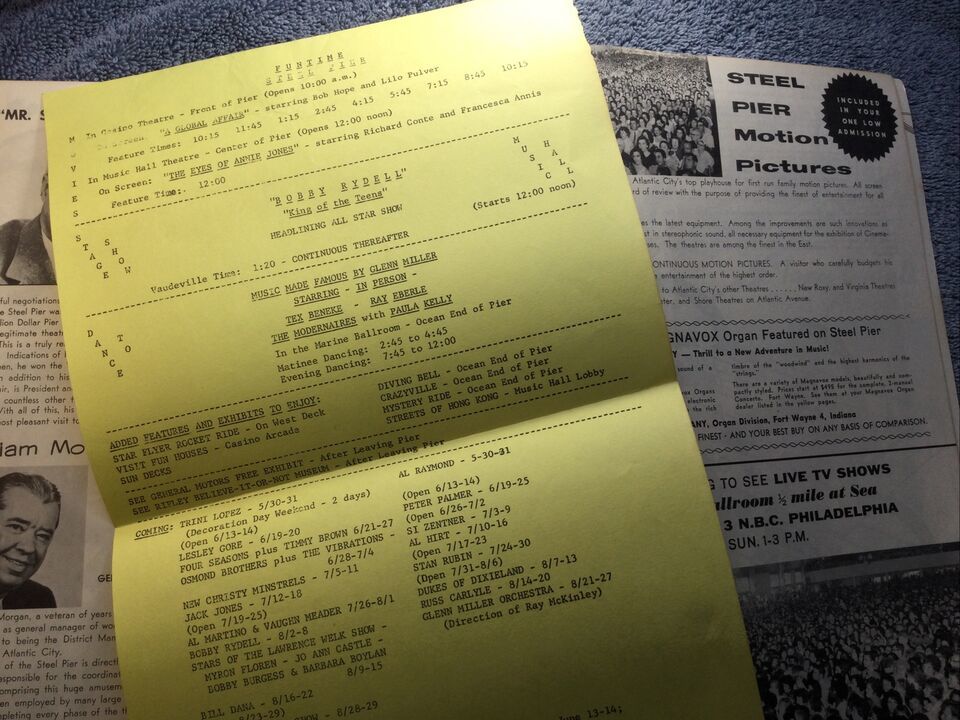 FUNTIME
STEEL PIER
MOVIES
In Casino Theatre - Front of Pier (Opens 10:00 a.m.)
On Screen: "A GLOBAL AFFAIR" - starring Bob Hope and Lilo Pulver
Feature Times: 10:15 11:45 1:15 2:45 4:15 5:45 7:15 8:45 10:15
In Music Hall Theatre - Center of Pier (Opens 12:00 noon)
On Screen: "THE EYES OF ANNIE JONES" - starring Richard Conte and Francesca Annis
Feature Time: 12:00
STAGE SHOW
"BOBBY RYDELL"
"King of the Teens"
HEADLINING ALL STAR SHOW
MUSIC HALL
(Starts 12:00 noon)
Vaudeville Time: 1:20 - CONTINUOUS THEREAFTER
DANCE TO
MUSIC MADE FAMOUS BY GLENN MILLER
STARRING - IN PERSON -
TEX BENEKE - RAY EBERLE
THE MODERNAIRES with PAULA KELLY
In the Marine Ballroom - Ocean End of Pier
Matinee Dancing: 2:45 to 4:45
Evening Dancing: 7:45 to 12:00
ADDED FEATURES AND EXHIBITS TO ENJOY:
STAR FLYER ROCKET RIDE - On West Deck
VISIT FUN HOUSES - Casino Arcade
SUN DECKS
DIVING BELL - Ocean End of Pier
CRAZYVILLE - Ocean End of Pier
MYSTERY RIDE - Ocean End of Pier
STREETS OF HONG KONG - Music Hall Lobby
SEE GENERAL MOTORS FREE EXHIBIT - After Leaving Pier
SEE RIPLEY BELIEVE-IT-OR-NOT MUSEUM - After Leaving Pier
COMING: TRINI LOPEZ - 5/30-31
(Decoration Day Weekend - 2 days)
(Open 6/13-14)
LESLEY GORE - 6/19-20
FOUR SEASONS plus TIMMY BROWN 6/21-27
OSMOND BROTHERS plus THE VIBRATIONS -
6/28-7/4
NEW CHRISTY MINSTRELS - 7/5-11
JACK JONES - 7/12-18
(Open 7/19-25)
AL MARTINO & VAUGEN MEADER 7/26-8/1
BOBBY RYDELL - 8/2-8
STARS OF THE LAWRENCE WELK SHOW -
MYRON FLOREN - JO ANN CASTLE -
BOBBY BURGESS & BARBARA BOYLAN
8/9-15
BILL DANA - 8/16-22
8/23-29)
SHOW - 8/28-29
AL RAYMOND - 5-30-31
(Open 6/13-14)
PETER PALMER - 6/19-25
(Open 6/26-7/2
SI ZENTNER - 7/3-9
AL HIRT - 7/10-16
(Open 7/17-23)
STAN RUBIN - 7/24-30
(Open 7/31-8/6)
DUKES OF DIXIELAND - 8/7-13
RUSS CARLYLE - 8/14-20
GLENN MILLER ORCHESTRA - 8/21-27
(Direction of Ray McKinley)
June 13-14;
"MR. S
ful negotiations
e Steel Pier wa
lion Dollar Pier
legitimate theat
This is a truly re
Indications of
een, he won the
n addition to his
ir, is President an
countless other
With all of this, his
most pleasant visit to
iam Mo
GE
Morgan, a veteran of years
as general manager of wo
to being the District Man
Atlantic City.
of the Steel Pier is directl
esponsible for the coordinat
comprising this huge amusem
en employed by many large
pleting every phase of the th
STEEL
PIER
Motion
Pictures
INCLUDED
IN YOUR
ONE LOW
ADMISSION
Atlantic City's top playhouse for first run family motion pictures. All screen
rd of review with the purpose of providing the finest of entertainment for all
s the latest equipment. Among the improvements are such innovations as
st in stereophonic sound, all necessary equipment for the exhibition of Cinema-
ses. The theatres are among the finest in the East.
CONTINUOUS MOTION PICTURES. A visitor who carefully budgets his
entertainment of the highest order.
to Atlantic City's other Theatres . . . . . , New Roxy, and Virginia Theatres
ter, and Shore Theatres on Atlantic Avenue.
GNAVOX Organ Featured on Steel Pier
Y — Thrill to a New Adventure in Music!
sound of a
Organs
electronic
the rich
timbre of the "woodwind" and the highest harmonics of the
"strings."
There are a variety of Magnavox models, beautifully and com-
pactly styled. Prices start at $495 for the complete, 2-manual
Concerto, Fort Wayne. See them at your Magnavox Organ
dealer listed in the yellow pages.
ANY, Organ Division, Fort Wayne 4, Indiana
FINEST - AND YOUR BEST BUY ON ANY BASIS OF COMPARISON.
G TO SEE LIVE TV SHOWS
allroom ½ mile at Sea
3 N.B.C. PHILADELPHIA
SUN. 1-3 P.M.